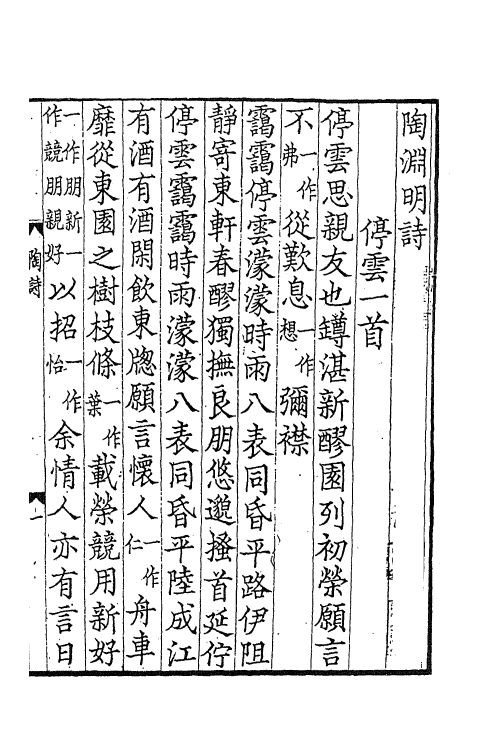 陶淵明詩
停雲一首
停雲思親友也罇湛新醪園列初榮願言
不一作弗從歎息一作想彌襟
靄靄停雲濛濛時雨八表同昏平路伊阻
靜寄東軒春醪獨撫良朋悠邈搔首延佇
停雲靄靄時雨濛濛八表同昏平陸成江
有酒有酒閑飲東牕願言懷人一作仁舟車
靡從東園之樹枝條一作葉載榮競用新好
一作朋新一作競朋親好以招一作怡余情人亦有言日
陶詩
一